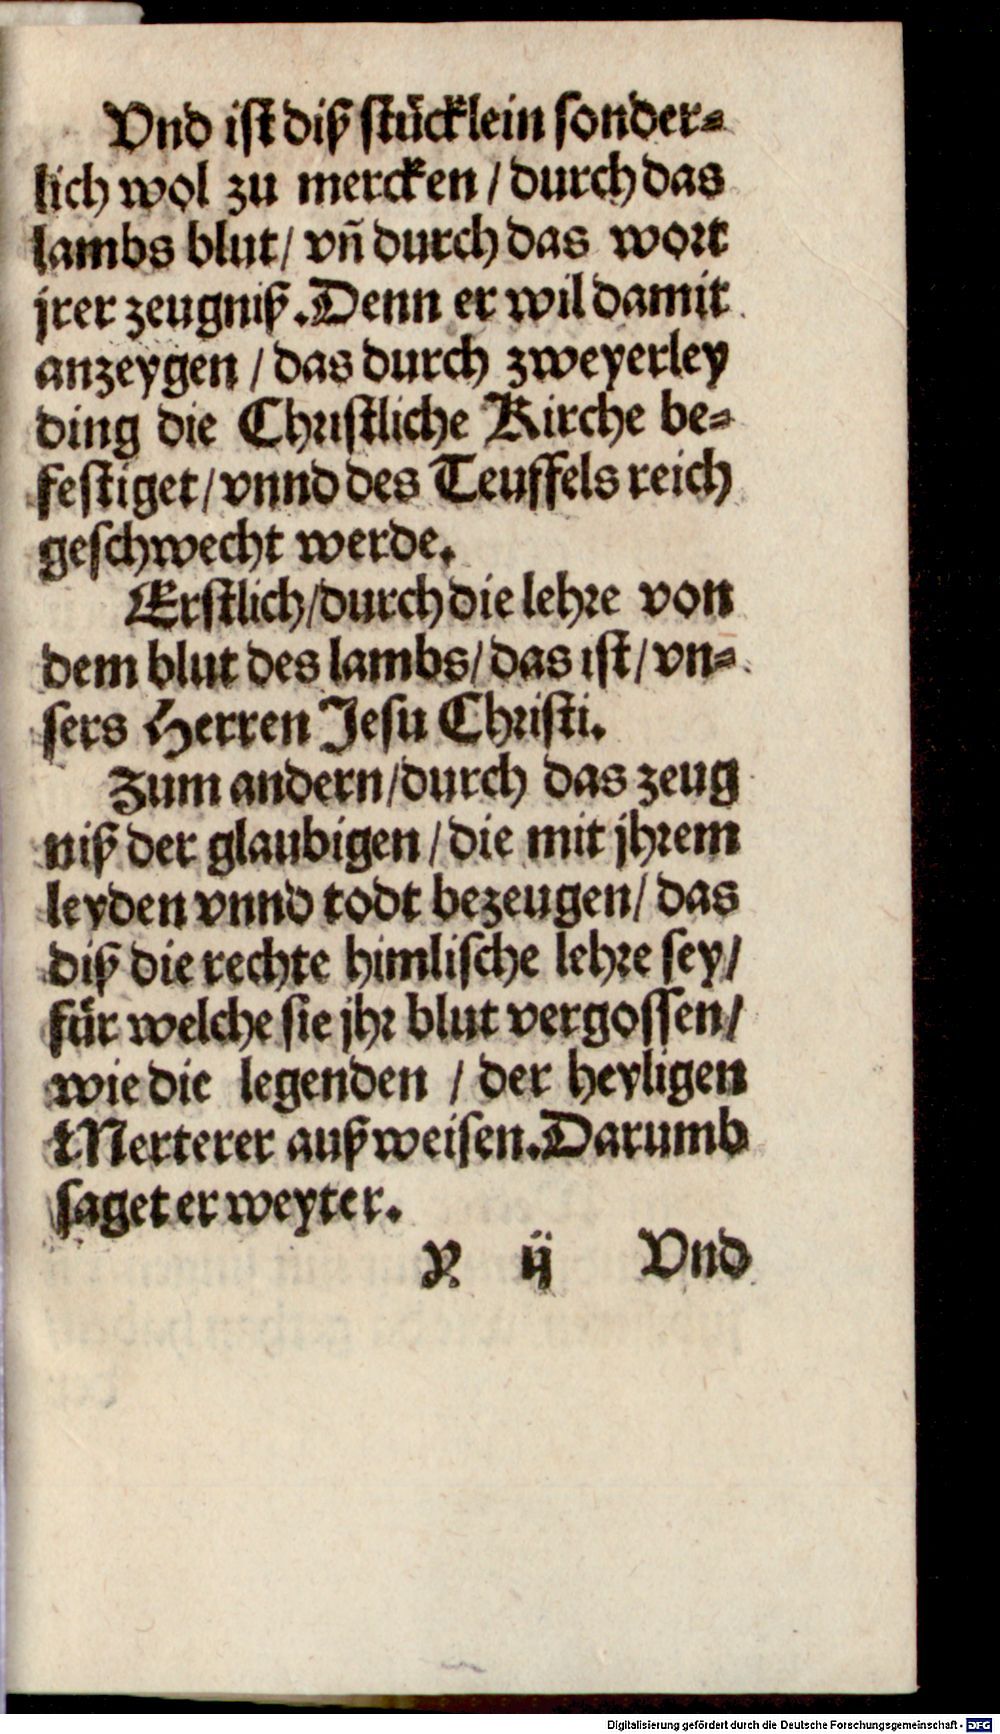 Vnd ist diß stücklein sonder=
lich wol zu mercken / durch das
lambs blut / vñ durch das wort
jrer zeugniß. Denn er wil damit
anzeygen / das durch zweyerley
ding die Christliche Kirche be=
festiget / vnnd des Teuffels reich
geschwecht werde.
Erstlich / durch die lehre von
dem blut des lambs / das ist / vn=
sers Herren Jesu Christi.
Zum andern / durch das zeug
niß der glaubigen / die mit jhrem
leyden vnnd todt bezeugen / das
diß die rechte himlische lehre sey /
für welche sie jhr blut vergossen /
wie die legenden / der heyligen
Merterer außweisen. Darumb
saget er weyter.
Y ij Vnd
Digitalisierung gefördert durch die Deutsche Forschungsgemeinschaft - DFG